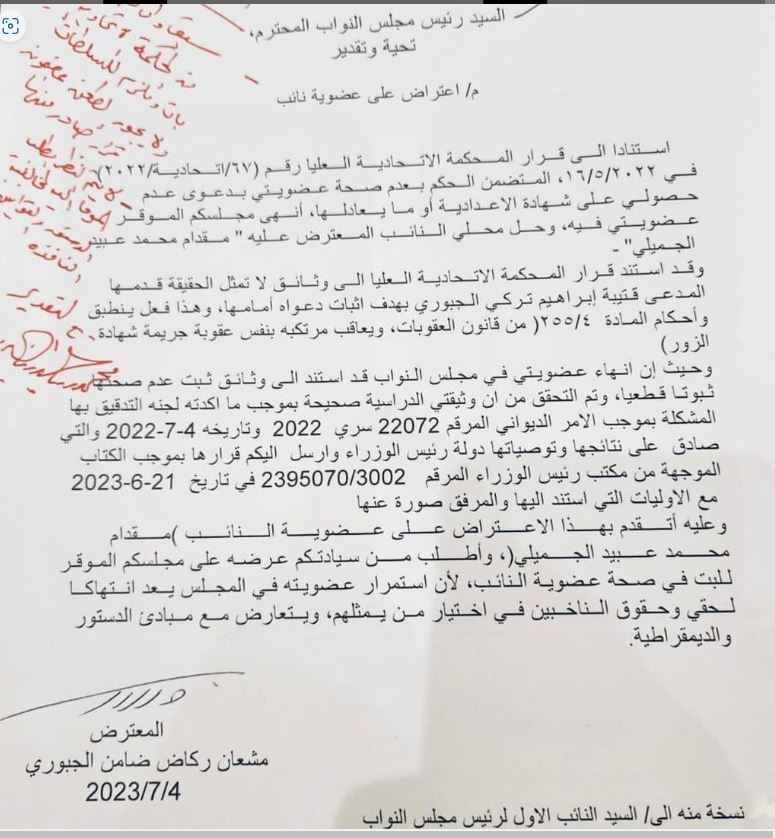 السيد رئيس مجلس النواب المحترم،
تحية وتقدير
م/ اعتراض على عضوية نائب
استنادا الى قرار المحكمة الاتحادية العليا رقم (٦٧/اتحادية/٢٠٢٢)
في ١٦/٥/٢٠٢٢، المتضمن الحكم بعدم صحة عضويتي بدعوى عدم
حصولي على شهادة الاعدادية أو ما يعادلها، أنهى مجلسكم الموقر
عضويتي فيه، وحل محلي النائب المعترض عليه " مقدام محمد عبيد
الجميلي" -
وقد استند قرار المحكمة الاتحادية العليا الى وثائق لا تمثل الحقيقة قدمها
المدعى قتيبة إبراهيم تركي الجبوري بهدف اثبات دعواه أمامها، وهذا فعل ينطبق
وأحكام المادة ٢٥٥/٤( من قانون العقوبات، ويعاقب مرتكبه بنفس عقوبة جريمة شهادة
الزور)
وحيث إن انهاء عضويتي في مجلس النواب قد استند الى وثائق ثبت عدم صحتها
ثبوتا قطعيا، وتم التحقق من ان وثيقتي الدراسية صحيحة بموجب ما اكدته لجنه التدقيق بها
المشكلة بموجب الامر الديواني المرقم 22072 سري 2022 وتاريخه 4-7-2022 والتي
صادق على نتائجها وتوصياتها دولة رئيس الوزراء وارسل اليكم قرارها بموجب الكتاب
الموجهة من مكتب رئيس الوزراء المرقم 2395070/3002 في تاريخ 21-6-2023
مع الاوليات التي استند اليها والمرفق صورة عنها
وعليه أتقدم بهذا الاعتراض على عضوية النائب )مقدام
محمد عبيد الجميلي(، وأطلب من سيادتكم عرضه على مجلسكم الموقر
للبت في صحة عضوية النائب، لأن استمرار عضويته في المجلس يعد انتهاكا
لحقي وحقوق الناخبين في اختيار من يمثلهم، ويتعارض مع مبادئ الدستور
والديمقراطية.
المعترض
مشعان ركاض ضامن الجبوري
2023/7/4
نسخة منه الى/ السيد النائب الاول لرئيس مجلس النواب